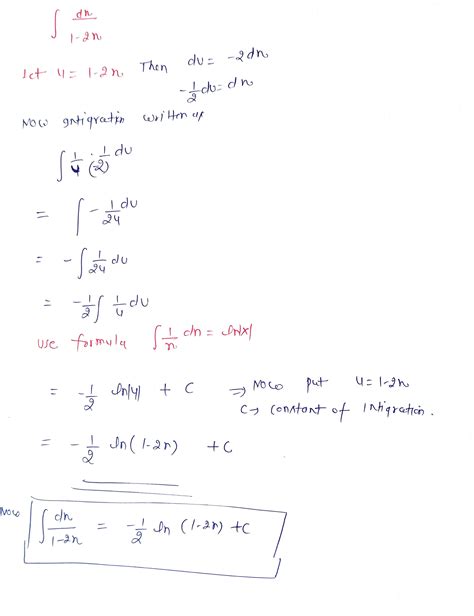 ∫ dx/(1-2x)
let u = 1-2x. Then du = -2dx
-1/2 du = dx
Now intigration written as
∫ 1/u · 1/(-2) du
= ∫ - 1/2u du
= -∫ 1/2u du
= -1/2 ∫ 1/u du
use formula ∫ 1/x dx = ln|x|
= -1/2 ln|u| + C ⇒ Now put u = 1-2x
C → constant of intigration.
= -1/2 ln(1-2x) + C
Now ∫ dx/(1-2x) = -1/2 ln (1-2x) + C